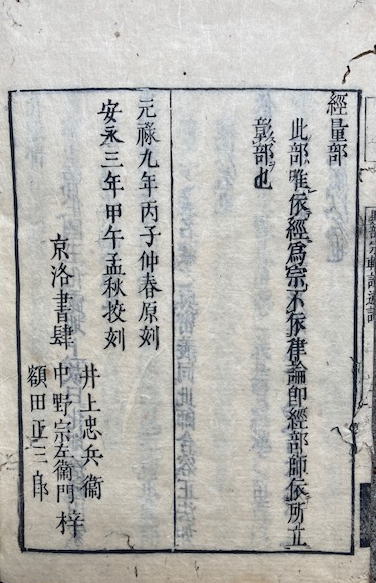 經量部
此部唯依經爲宗不依律論即經部師依所立
彰部也
元祿九年丙子仲春原刻
安永三年甲午孟秋挍刻
京洛書肆
井上忠兵衞
中野宗左衞門 梓
額田正三郎